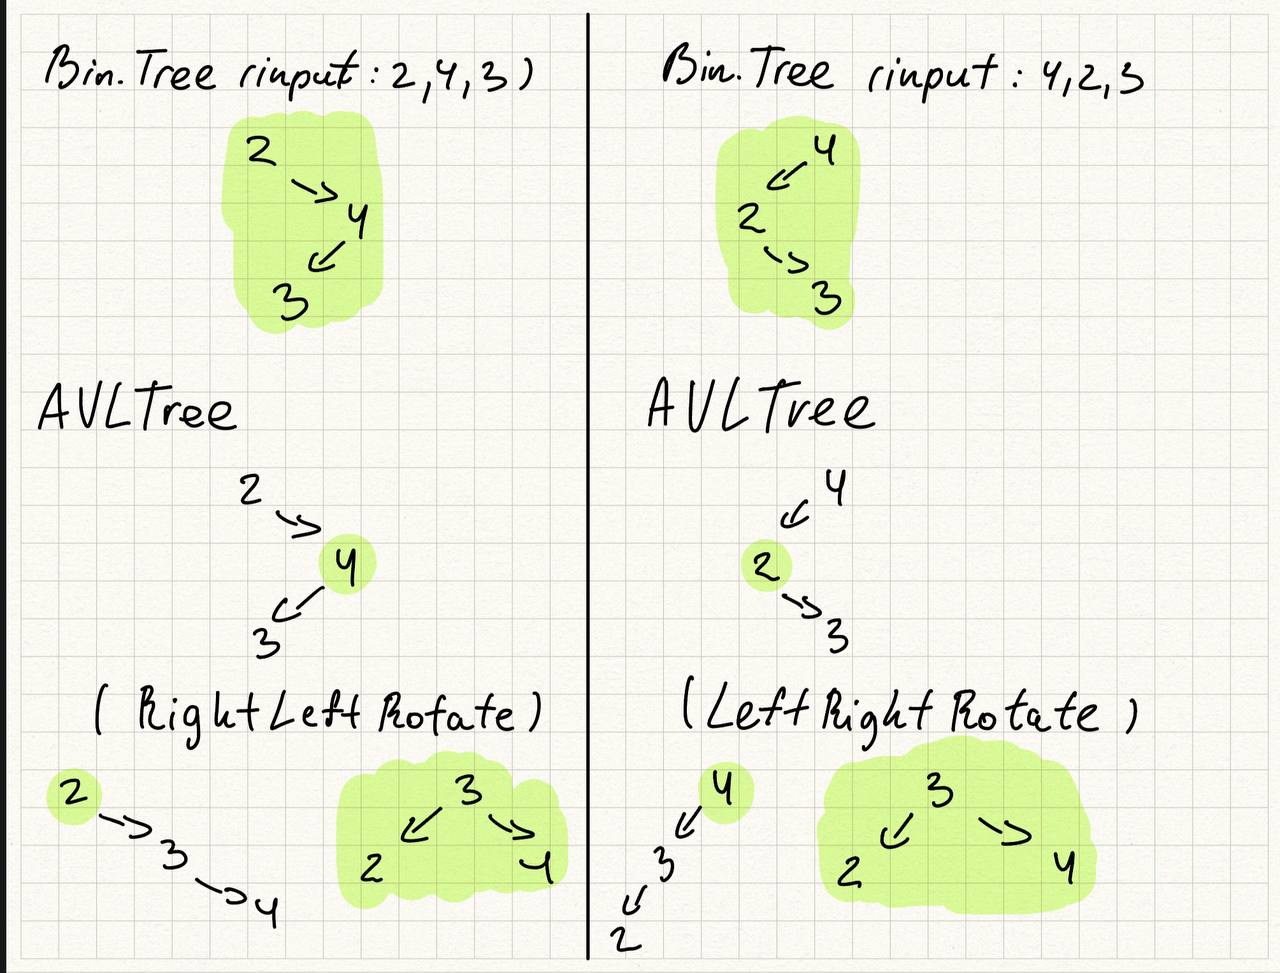 Bin. Tree (input: 2,4,3)
2
4
3
AVLTree
2
4
3
(Right Left Rotate)
2
3
4
3
2
4
Bin. Tree (input: 4,2,3
4
2
3
AVLTree
4
2
3
(Left Right Rotate)
4
3
2
3
2
4